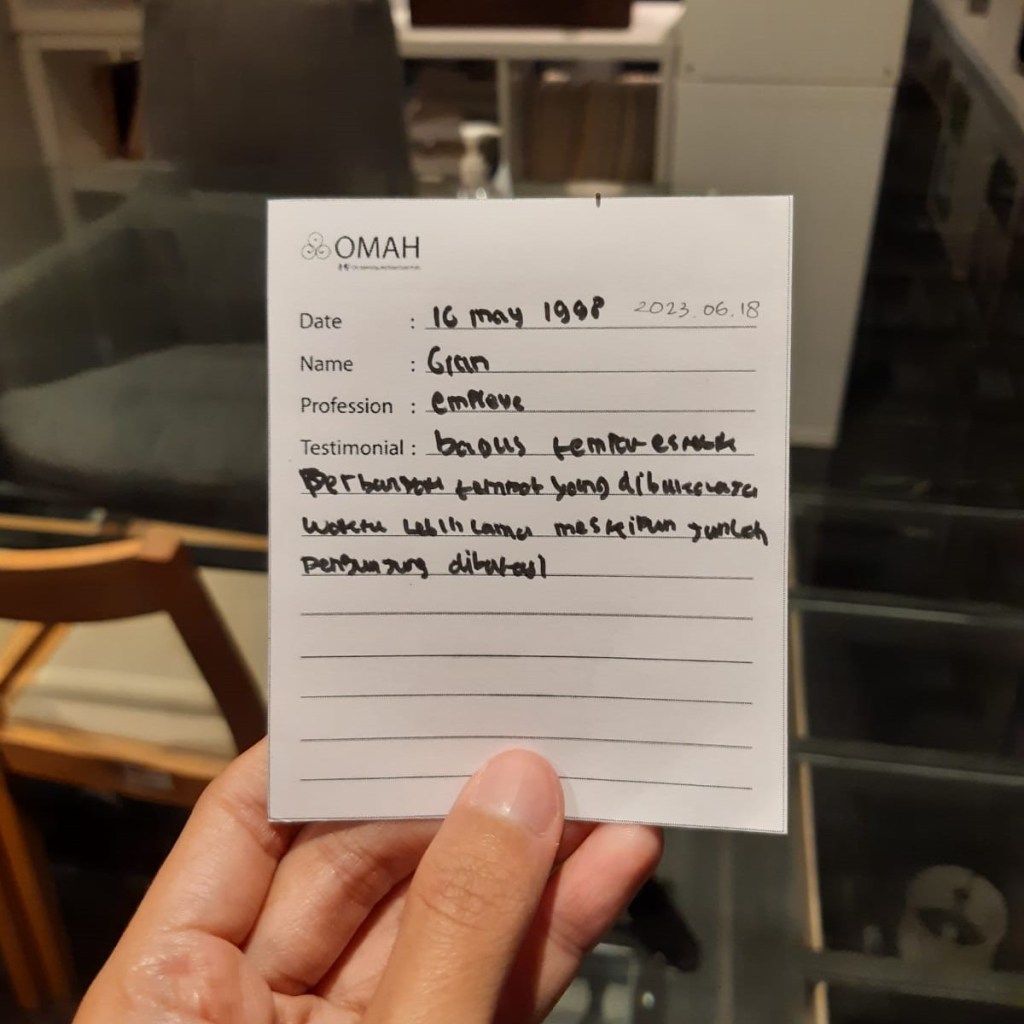 OMAH
Date : 16 may 1998 2023.06.18
Name : Gian
Profession : employe
Testimonial : bagus tempat estetik
perbanyak tempat yang dibuka
waktu lebih lama meskipun jumlah
pengunjung dibatasi